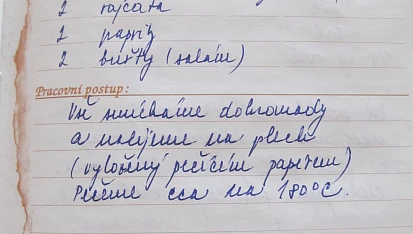 2 rajčata
1 papriky
2 buřty (salám)
Pracovní postup:
Vše smícháme dohromady
a nalijeme na plech
(vyložený pečícím papírem)
Pečeme cca na 180°C.